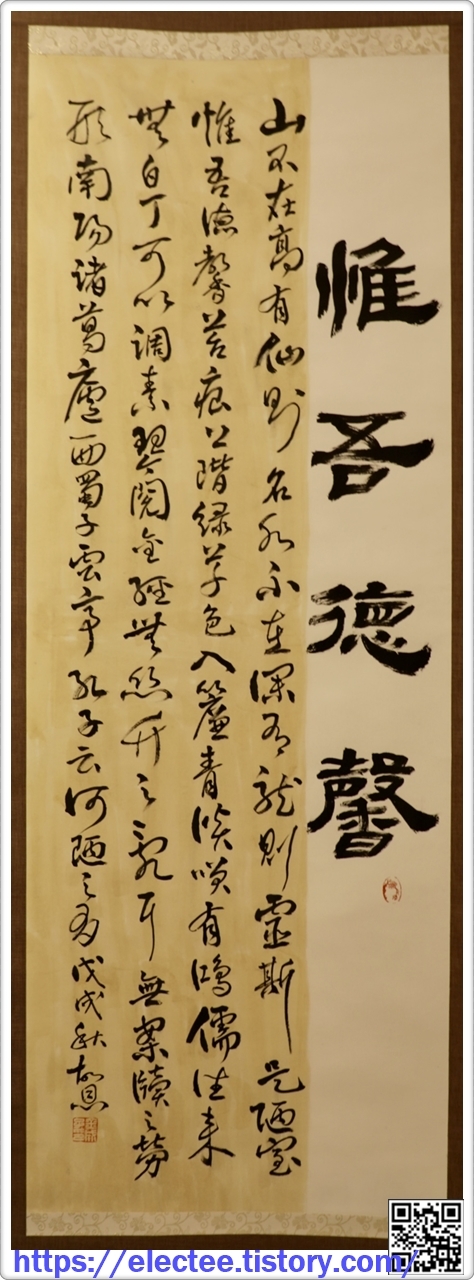 惟吾德馨
山不在高有仙則名水不在深有龍則靈斯是陋室
惟吾德馨苔痕上階綠草色入簾青談笑有鴻儒往來
無白丁可以調素琴閱金經無絲竹之亂耳無案牘之勞
形南陽諸葛廬西蜀子雲亭孔子云何陋之有戊戌秋
https://electee.tistory.com/